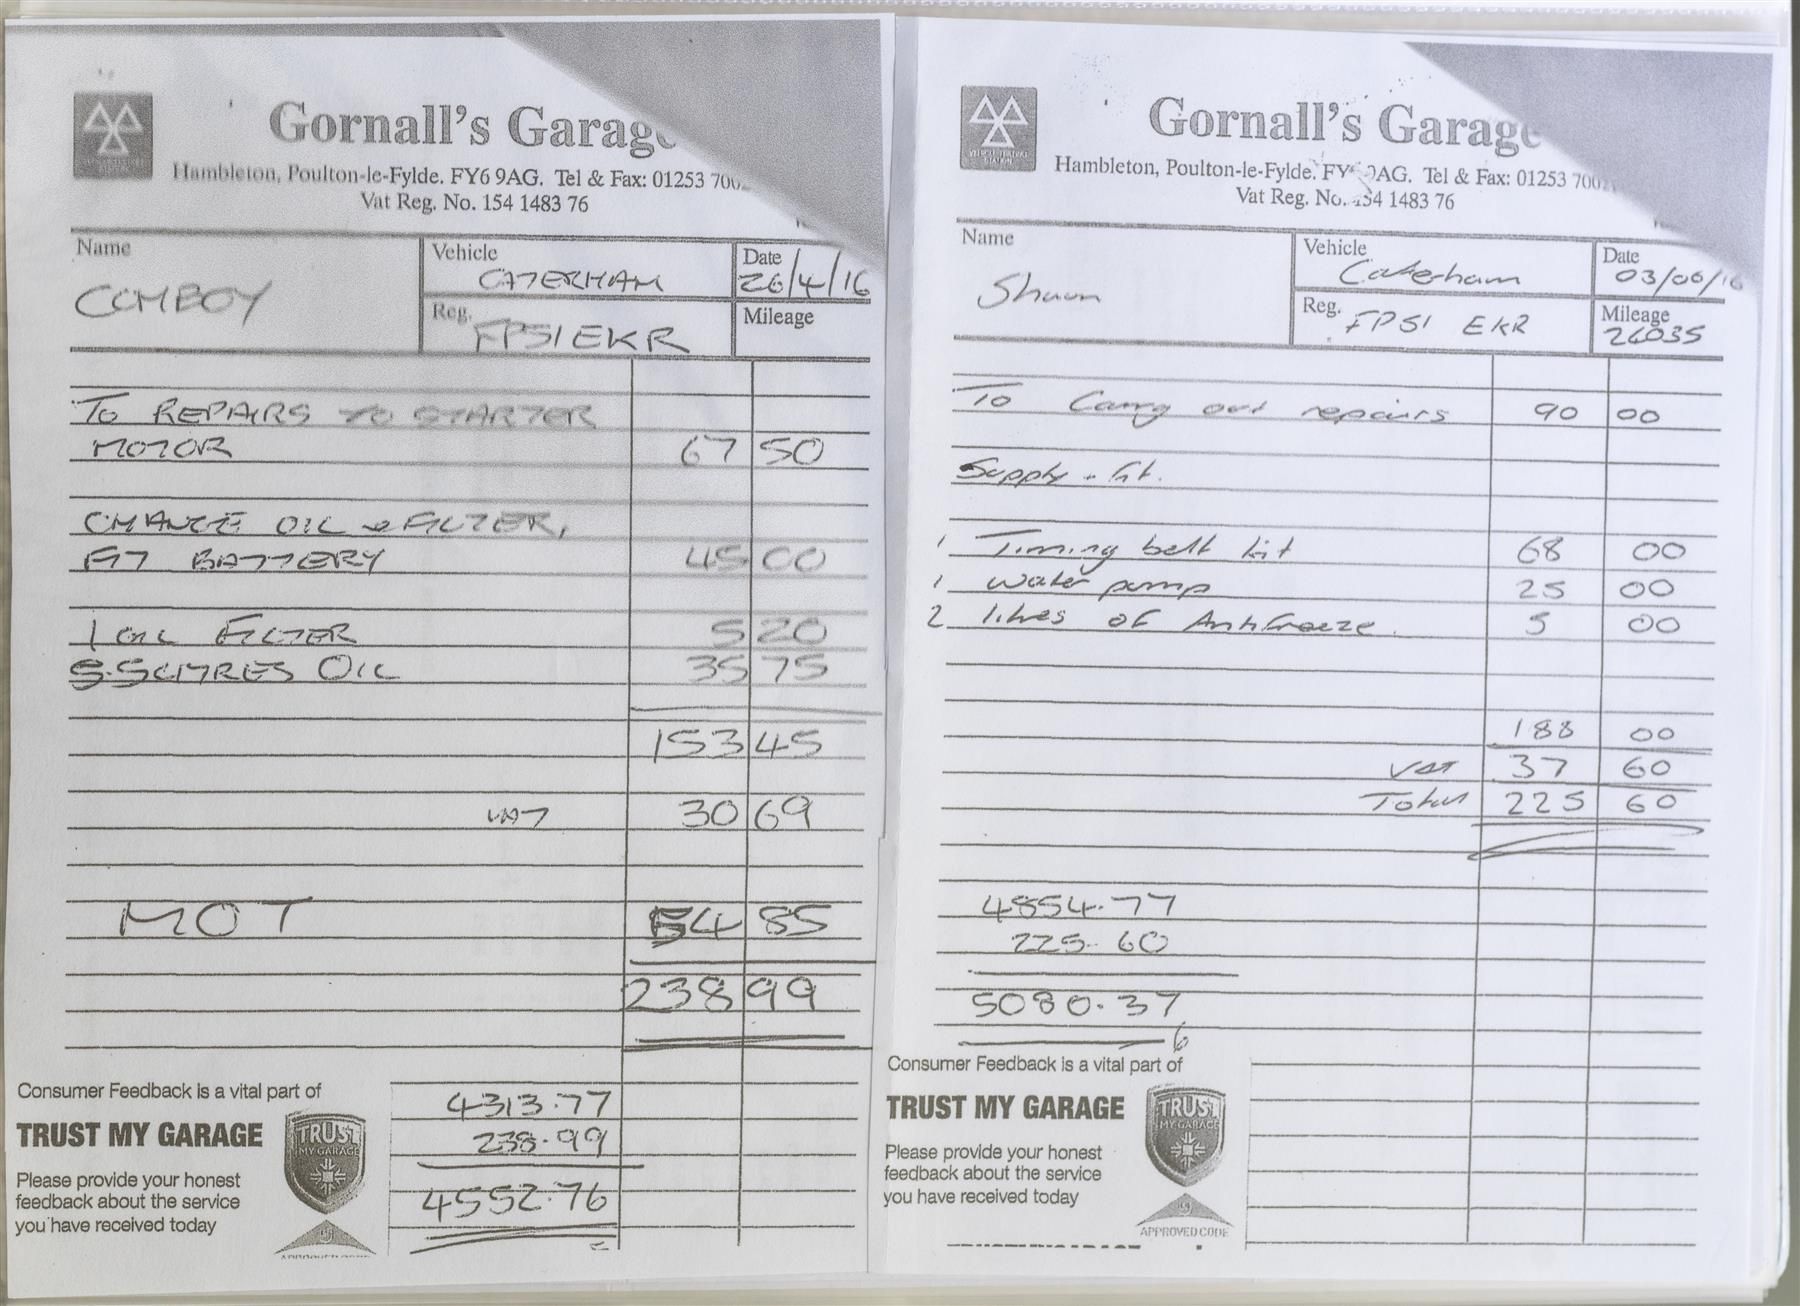 Gornall's Garage
Hambleton, Poulton-le-Fylde. FY6 9AG. Tel & Fax: 01253 700
Vat Reg. No. 154 1483 76
Name
COMBOY
Vehicle
CATERHAM
Date
26/4/16
Reg.
FP51EKR
Mileage
TO REPAIRS TO STARTER
MOTOR 67 50
CHANGE OIL & FILTER,
FIT BATTERY 45 00
1 OIL FILTER 5 20
5.5 LITRES OIL 35 75
153 45
VAT 30 69
MOT 54 85
238 99
4313.77
238.99
4552.76
Consumer Feedback is a vital part of
TRUST MY GARAGE
Please provide your honest
feedback about the service
you have received today
TRUST
MY GARAGE
Gornall's Garage
Hambleton, Poulton-le-Fylde. FY6 9AG. Tel & Fax: 01253 700
Vat Reg. No. 154 1483 76
Name
Shaun
Vehicle
Caterham
Date
03/06/16
Reg.
FP51 EKR
Mileage
26035
To Carry out repairs 90 00
Supply + fit.
1 Timing belt kit 68 00
1 water pump 25 00
2 litres of Antifreeze. 5 00
188 00
VAT 37 60
Total 225 60
4854.77
225.60
5080.37
6
Consumer Feedback is a vital part of
TRUST MY GARAGE
Please provide your honest
feedback about the service
you have received today
TRUST
MY GARAGE
APPROVED CODE